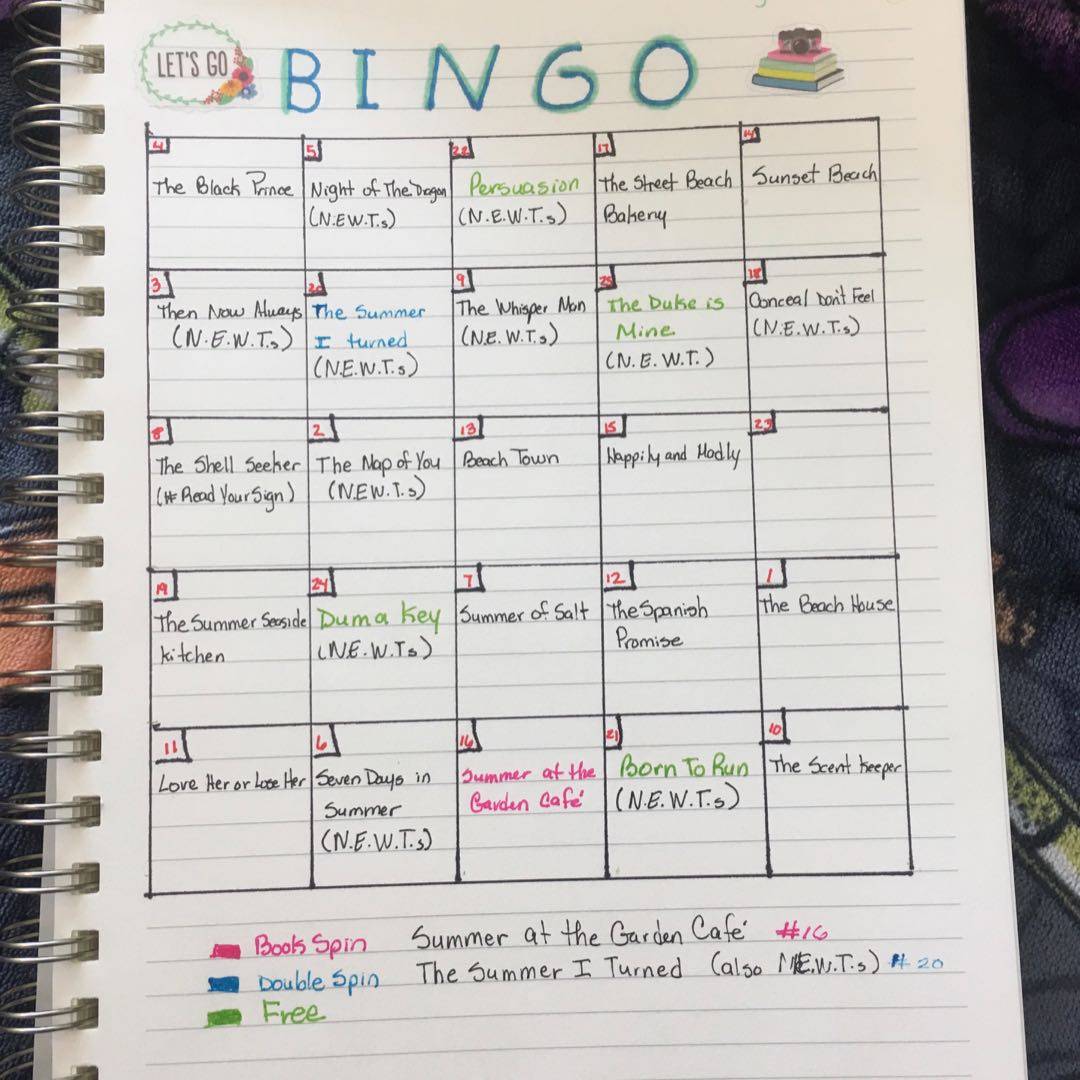 LET'S GO
BINGO
4
The Black Prince
5
Night of The Dragon
(N.E.W.T.s)
22
Persuasion
(N.E.W.T.s)
17
The Street Beach
Bakery
14
Sunset Beach
3
Then Now Always
(N.E.W.T.s)
20
The Summer
I turned
(N.E.W.T.s)
9
The Whisper Man
(N.E.W.T.s)
25
The Duke is
Mine
(N.E.W.T.)
18
Conceal Don't Feel
(N.E.W.T.s)
8
The Shell Seeker
(# Read Your Sign)
2
The Map of You
(N.E.W.T.s)
13
Beach Town
15
Happily and Madly
23
19
The Summer Seaside
kitchen
24
Duma Key
(N.E.W.T.s)
7
Summer of Salt
12
The Spanish
Promise
1
The Beach House
11
Love Her or Lose Her
6
Seven Days in
Summer
(N.E.W.T.s)
16
Summer at the
Garden Café
21
Born To Run
(N.E.W.T.s)
10
The Scent Keeper
Book Spin Summer at the Garden Café #16
Double Spin The Summer I Turned (also N.E.W.T.s) #20
Free